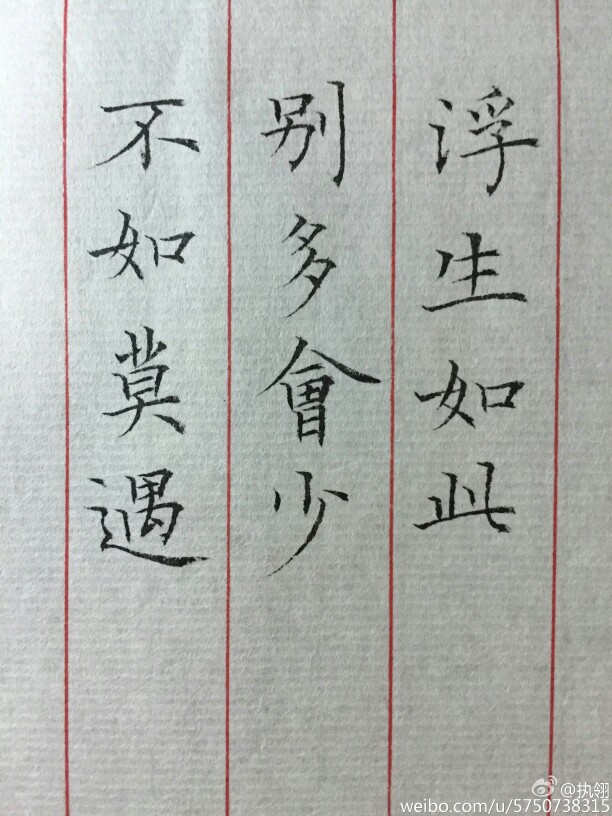 浮生如此
别多會少
不如莫遇
@执翎
weibo.com/u/5750738315